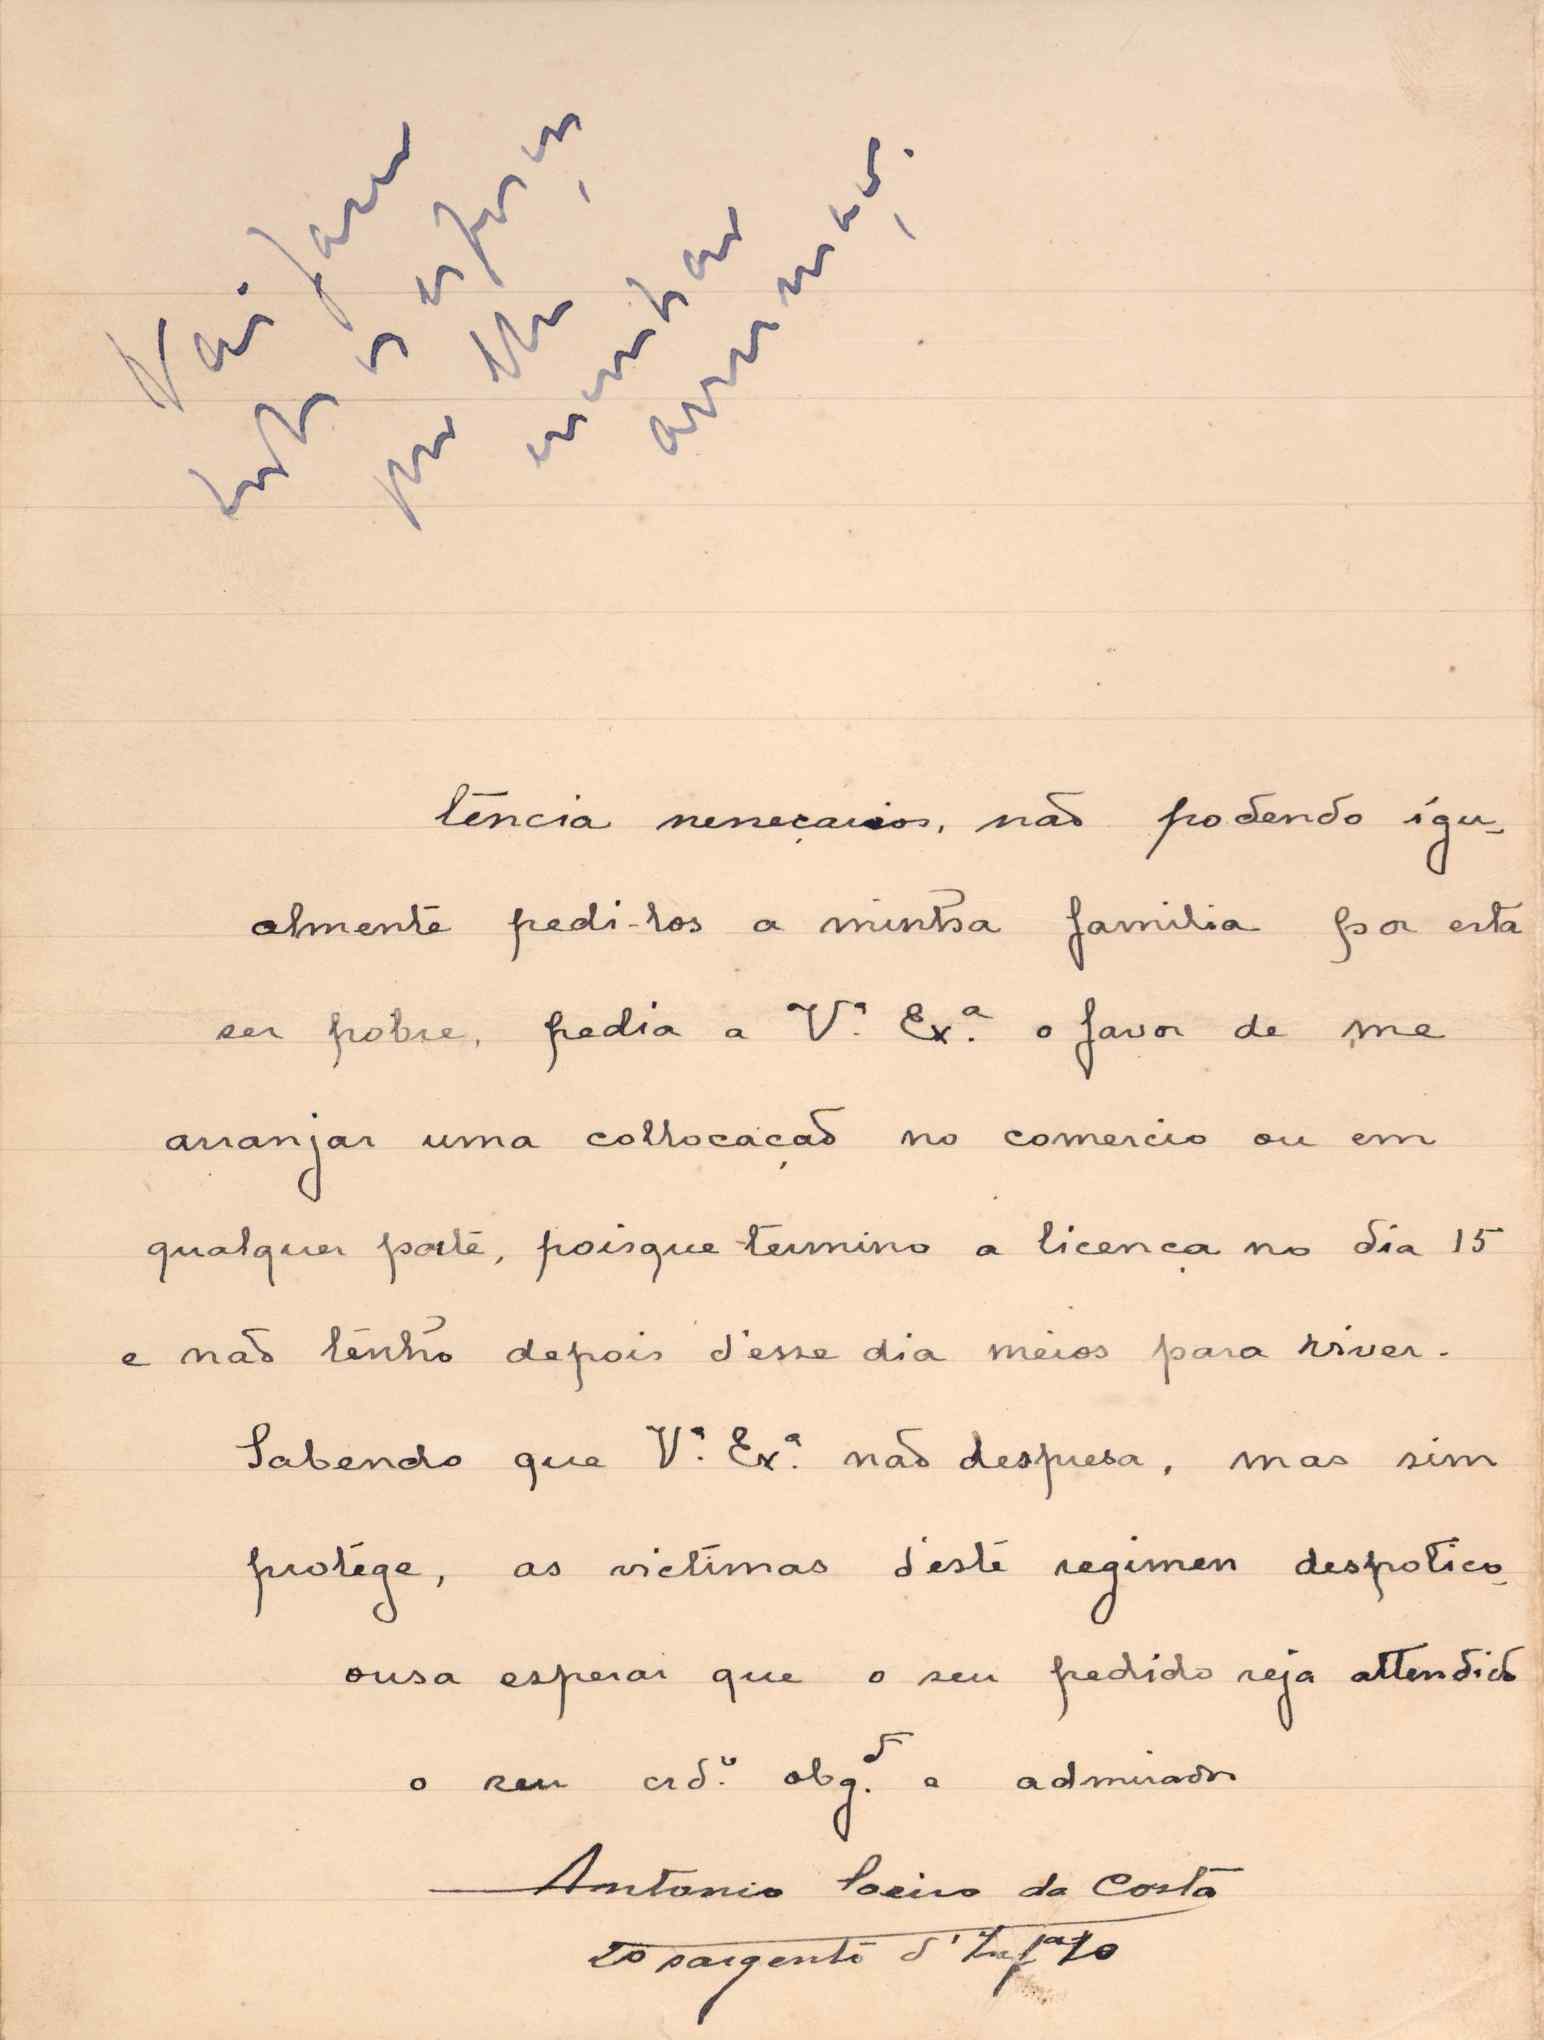 Vai fazer
todos os esforços
para lhe
encontrar
arrumação.
tencia neneçarios, não podendo igu-
almente pedi-los a minha familia por esta
ser pobre, pedia a Vª. Exª. o favor de me
arranjar uma collocação no comercio ou em
qualquer parte, poisque termino a licença no dia 15
e não tenho depois d'esse dia meios para viver.
Sabendo que Vª. Exª. não despresa, mas sim
protége, as victimas d'este regimen despotico
ousa esperar que o seu pedido seja attendido
o seu crdº. obgd. e admirador
Antonio Loeiro da Costa
2º sargento d'Infª